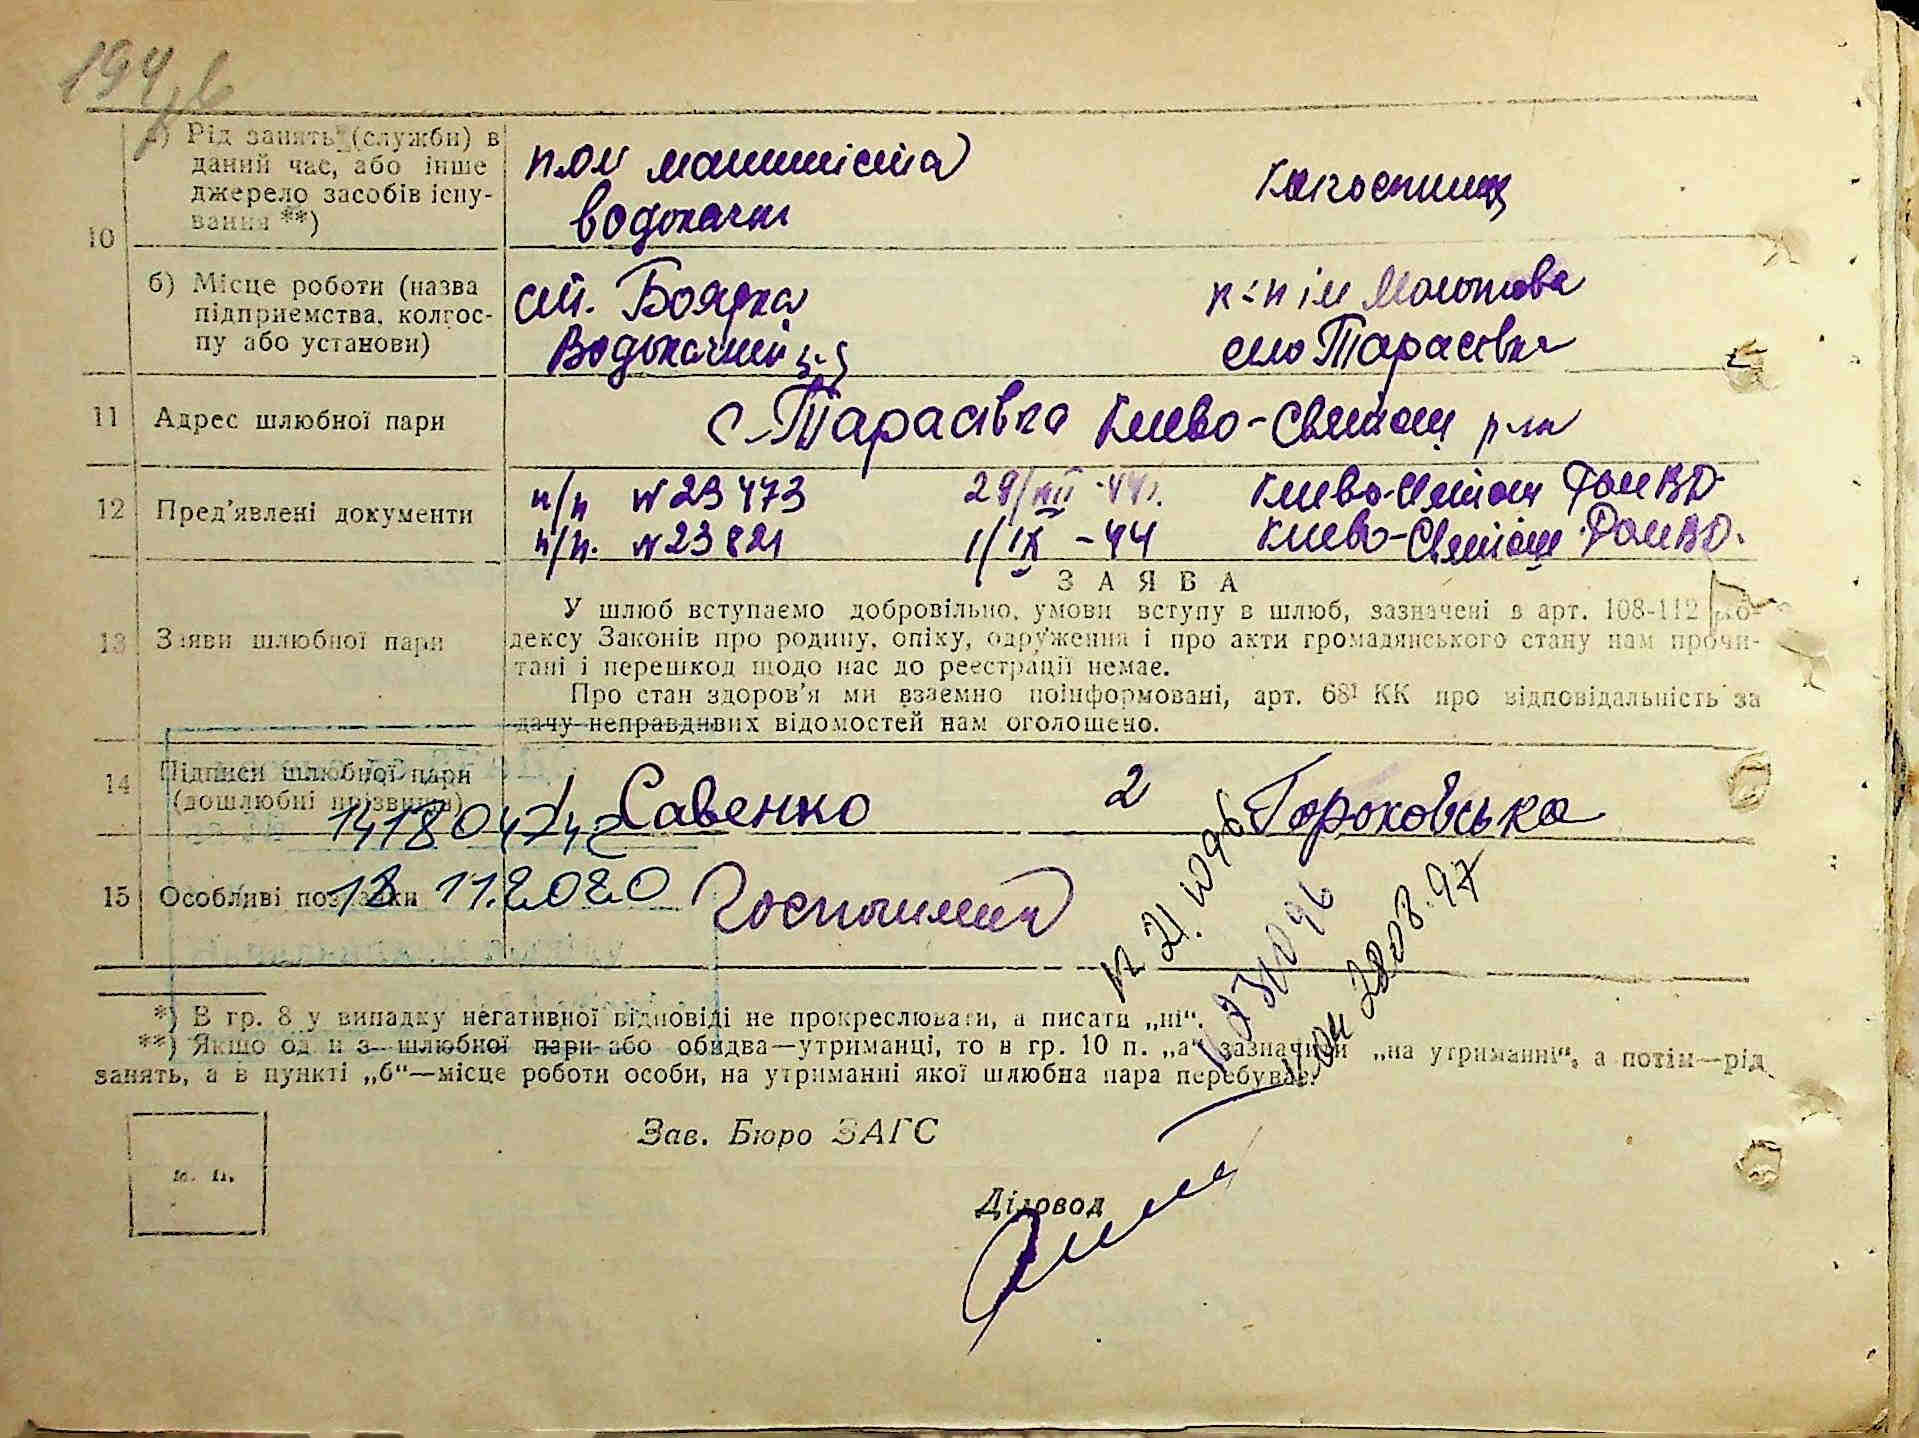 10 а) Рід занять (служби) в
даний час, або інше
джерело засобів існу-
вання **)
пом машиніста
водокачки
Колгоспниця
б) Місце роботи (назва
підприємства, колгос-
пу або установи)
ст. Боярка
Водокачний
к-п ім Молотова
село Тарасівка
11 Адрес шлюбної пари
с. Тарасівка Києво-Святош р-на
12 Пред'явлені документи
п/п №23473 29/VII-44. Києво-Святош РОМВД
п/п. №23821 1/IX-44 Києво-Святош РОМВД.
ЗАЯВА
13 Заяви шлюбної пари
У шлюб вступаємо добровільно, умови вступу в шлюб, зазначені в арт. 108-112 Ко-
дексу Законів про родину, опіку, одруження і про акти громадянського стану нам прочи-
тані і перешкод щодо нас до реєстрації немає.
Про стан здоров'я ми взаємно поінформовані, арт. 68¹ КК про відповідальність за
дачу неправдивих відомостей нам оголошено.
14 Підписи шлюбної пари
(дошлюбні прізвища)
1 Савенко 2 Гороховська
15 Особливі позначки
18.11.2020
28.08.97
*) В гр. 8 у випадку негативної відповіді не прокреслювати, а писати „ні“.
**) Якщо один з шлюбної пари або обидва—утриманці, то в гр. 10 п. „а“ зазначити „на утриманні“, а потім—рід
занять, а в пункті „б“—місце роботи особи, на утриманні якої шлюбна пара перебуває.
Зав. Бюро ЗАГС
м. п.
Діловод